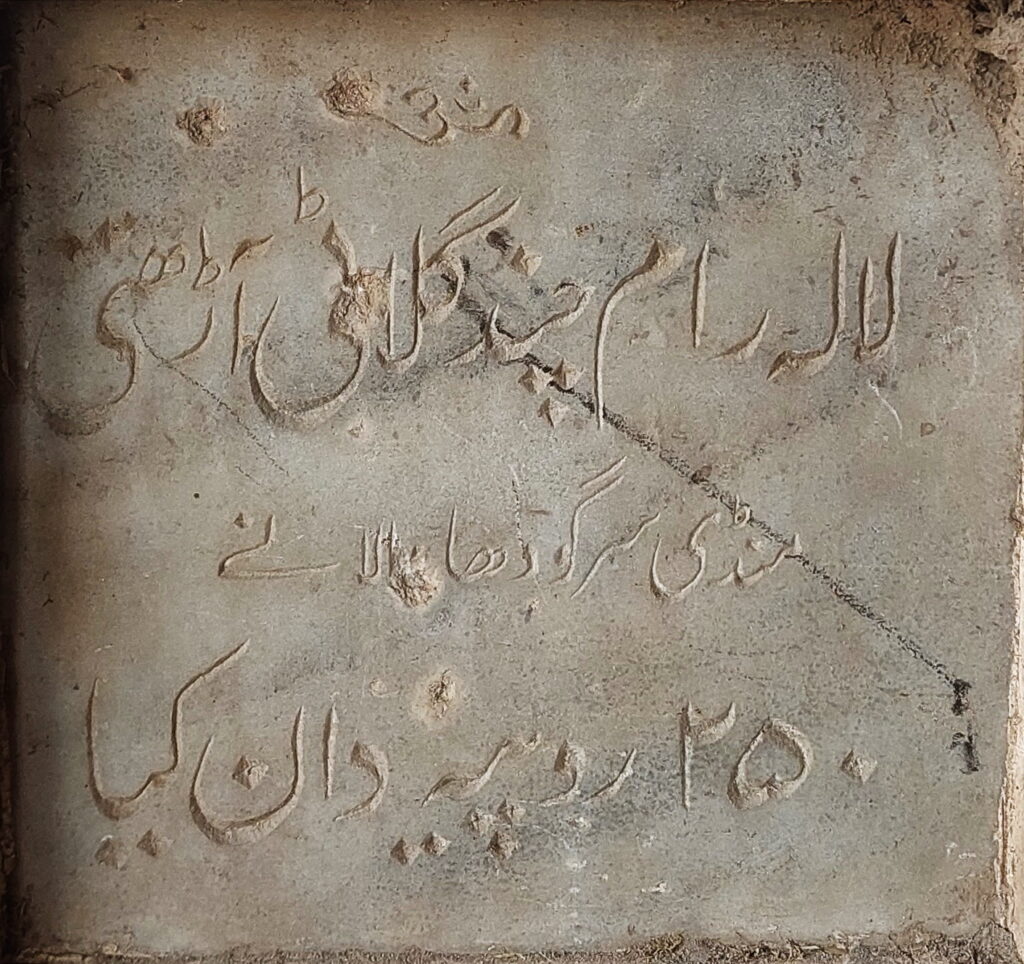 لالہ رام چند گلاٹی آڑھتی
منڈی سرگودھا والا نے
۲۵۰ روپیہ دان کیا